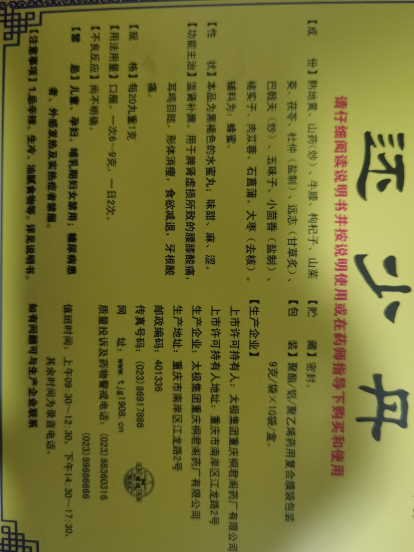 还少丹
请仔细阅读说明书并按说明使用或在药师指导下购买和使用
【成　份】熟地黄、山药(炒)、牛膝、枸杞子、山茱
萸、茯苓、杜仲(盐制)、远志(甘草炙)、
巴戟天(炒)、五味子、小茴香(盐制)、
楮实子、肉苁蓉、石菖蒲、大枣(去核)。
辅料为：蜂蜜。
【性　状】本品为黑褐色的水蜜丸；味甜、麻、涩。
【功能主治】温肾补脾。用于脾肾虚损所致的腰膝酸痛，
耳鸣目眩，形体消瘦，食欲减退，牙根酸
痛。
【规　格】每20丸重1克
【用法用量】口服。一次6~9克，一日2次。
【不良反应】尚不明确。
【禁　忌】儿童、孕妇、哺乳期妇女禁用；糖尿病患
者、外感发热及实热症者禁服。
【注意事项】1.忌辛辣、生冷、油腻食物等。详见说明书。
【贮　藏】密封。
【包　装】聚酯/铝/聚乙烯药用复合膜袋包装
9克/袋×10袋/盒。
【生产企业】
上市许可持有人：太极集团重庆桐君阁药厂有限公司
上市许可持有人地址：重庆市南岸区江龙路2号
生产企业：太极集团重庆桐君阁药厂有限公司
生产地址：重庆市南岸区江龙路2号
邮政编码：401336
传真号码：(023)86917886
网　址：www.tjg1908.cn
质量投诉及药物警戒电话：(023)86360316
(023)89886666
值班时间：上午09:30~12:30，下午14:30~17:30，
其余时间为录音电话。
如有问题可与生产企业联系